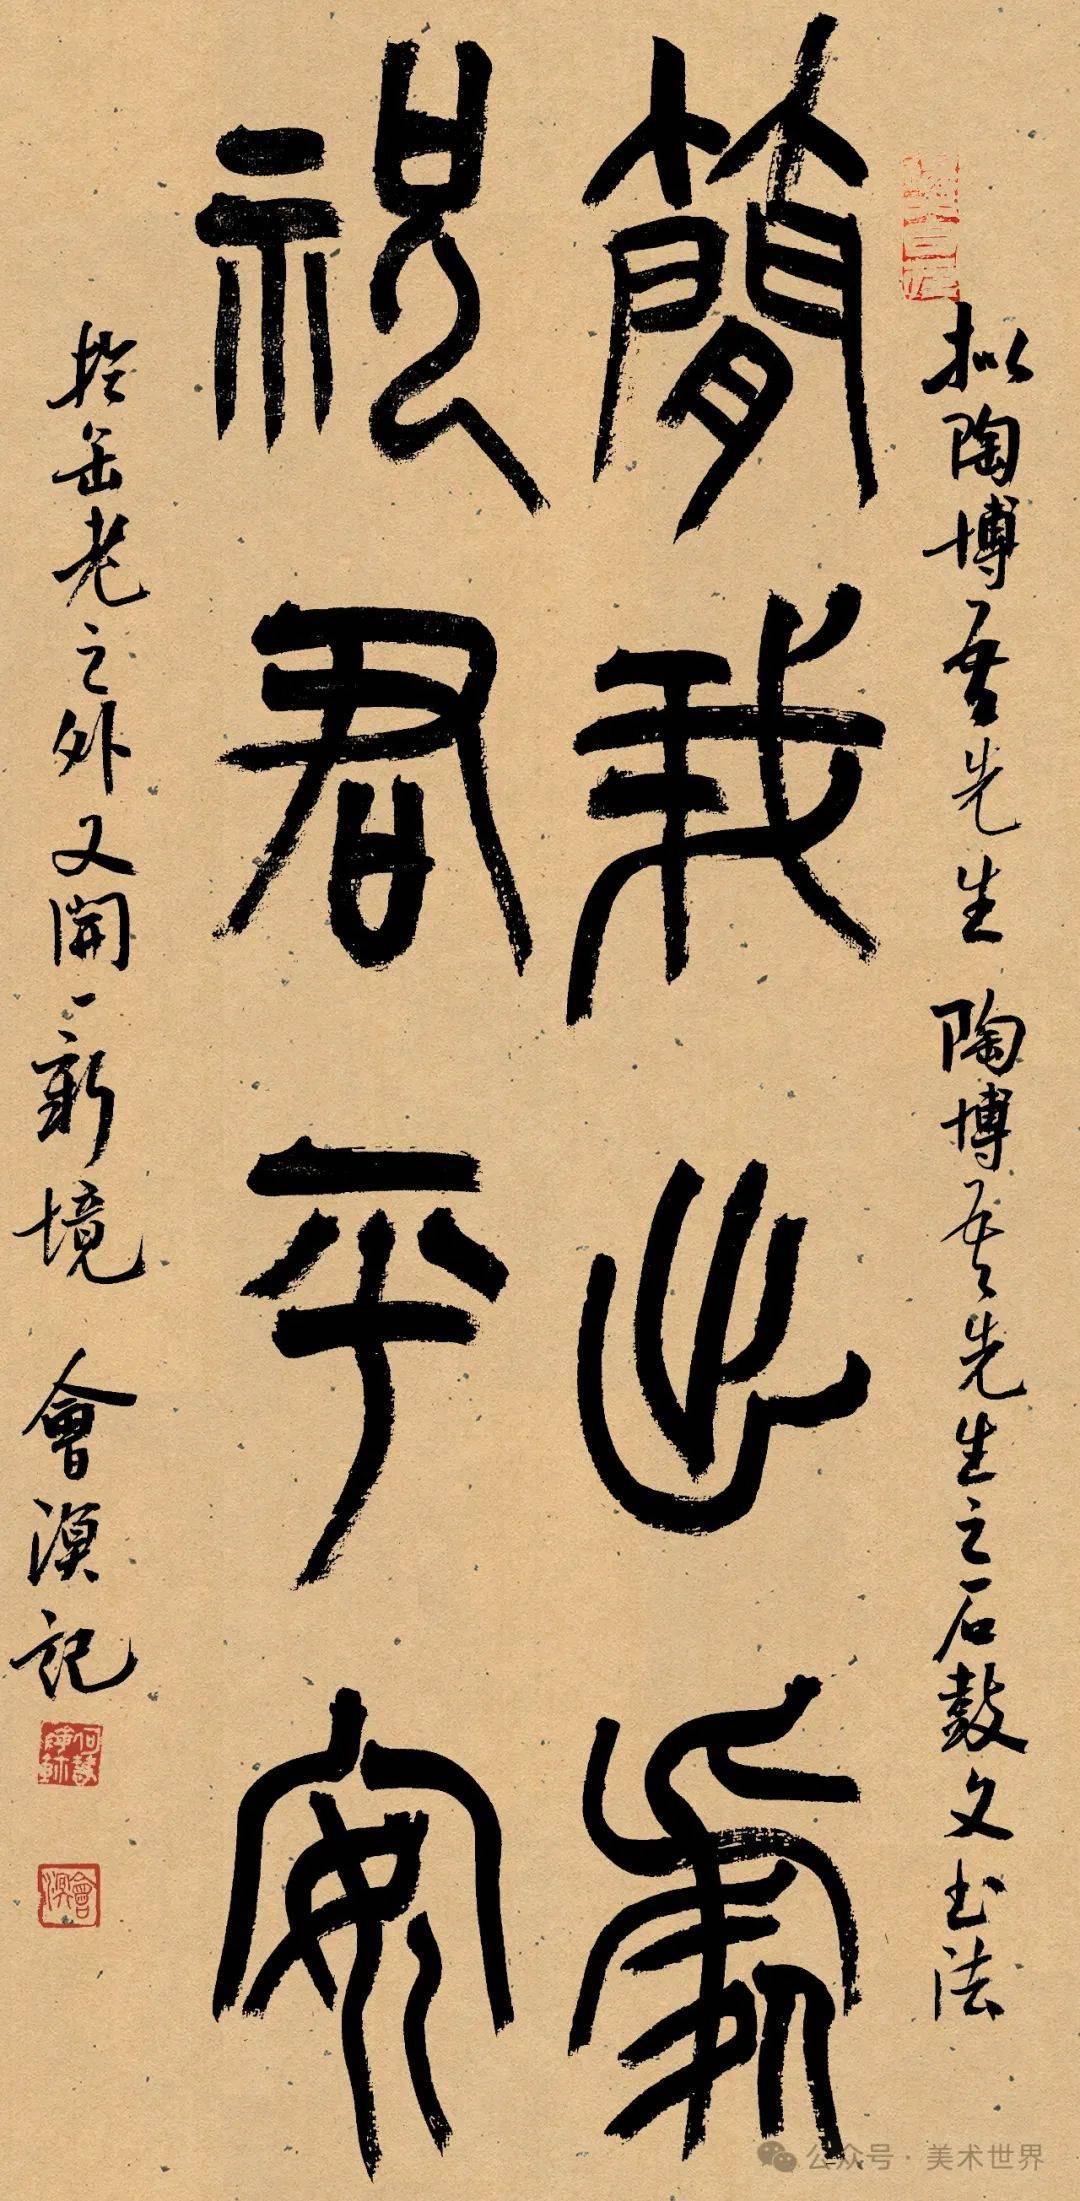 拟陶博吾先生 陶博吾先生之石鼓文书法
簡我出處
祝君平安
扵缶老之外又開一新境 會溟記
公众号·美术世界